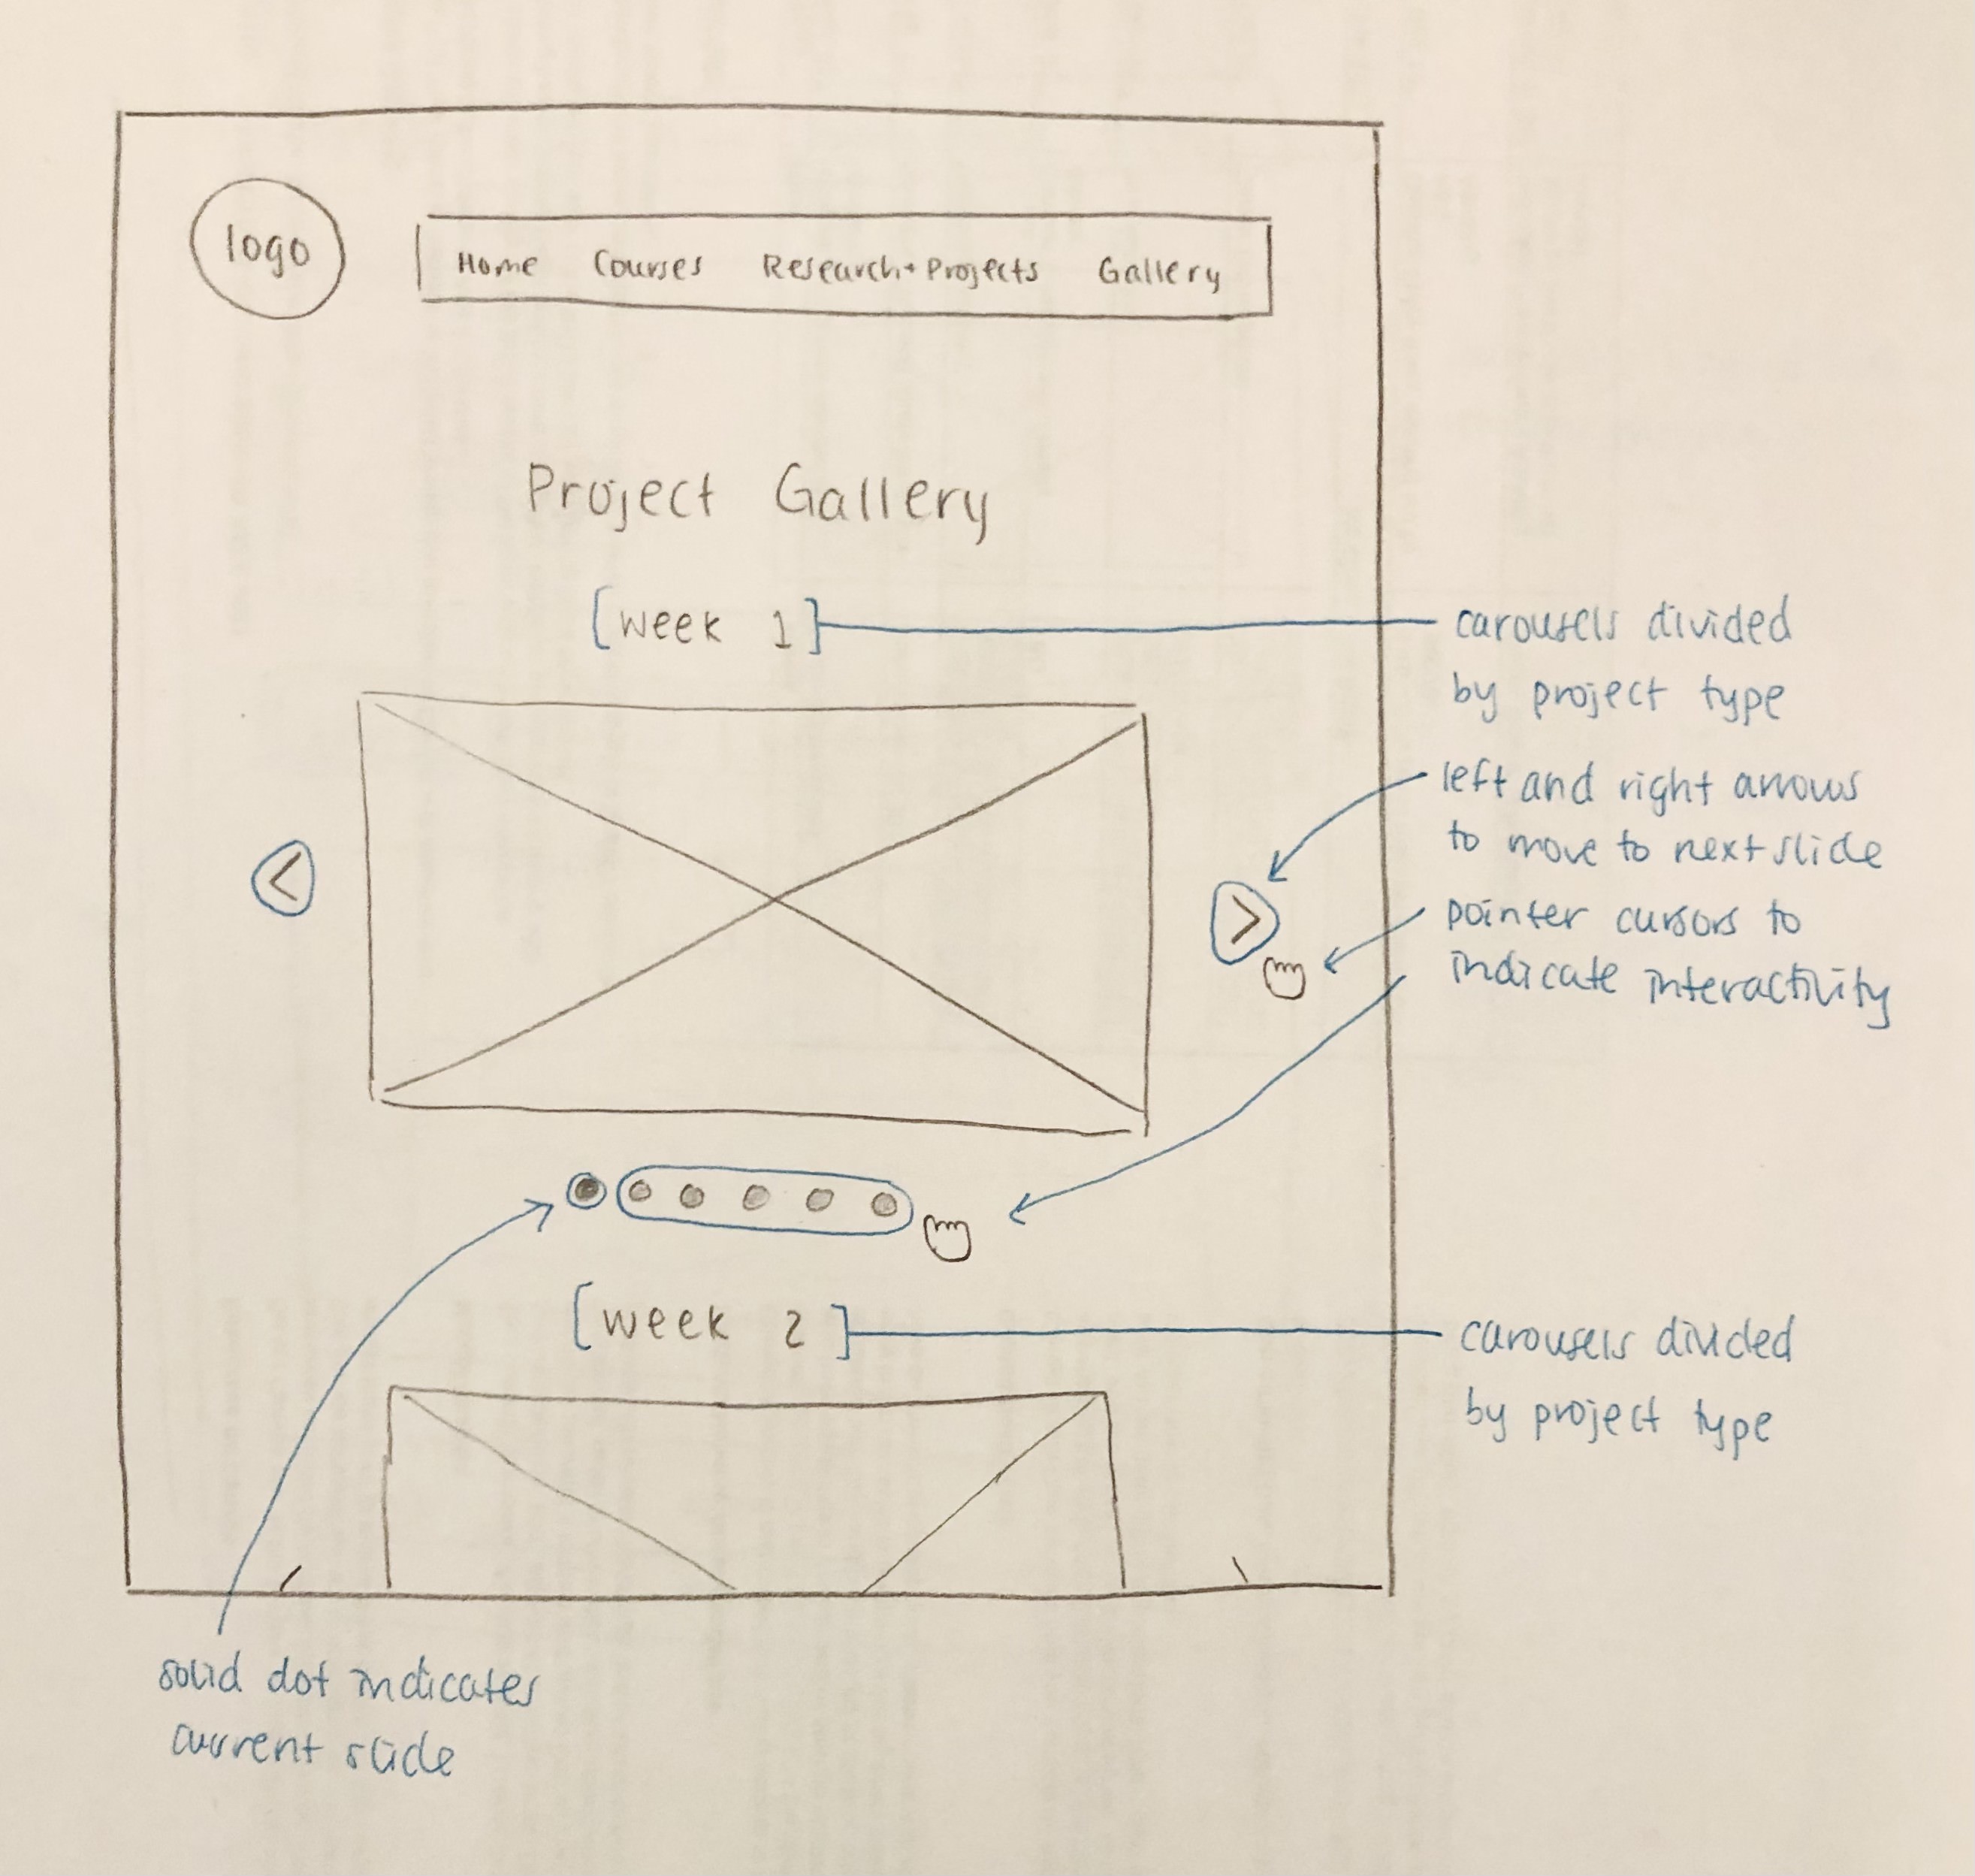 logo
Home Courses Research+Projects Gallery
Project Gallery
[week 1]
carousels divided
by project type
left and right arrows
to move to next slide
<
>
pointer cursors to
indicate interactivity
[week 2]
carousels divided
by project type
solid dot indicates
current slide